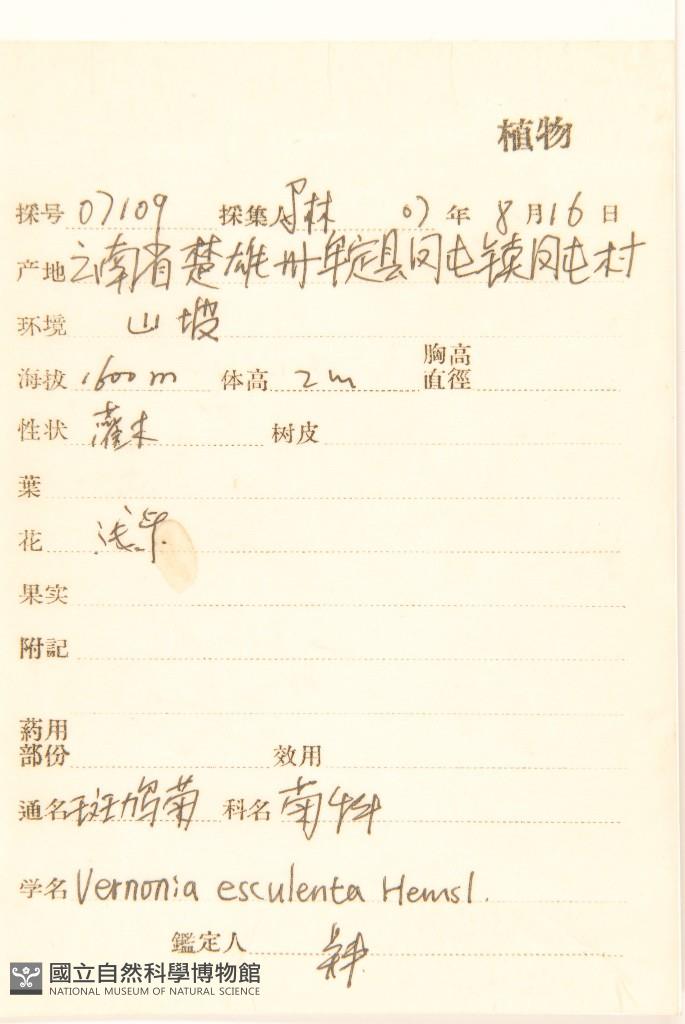 植物
採号 07109 採集人 林 07年 8月16日
产地 云南省楚雄州牟定县凤屯镇凤屯村
环境 山坡
海拔 1600m 体高 2m 胸高直徑
性状 灌木 树皮
葉
花 浅紫
果实
附記
葯用部份 效用
通名 斑鸠菊 科名 菊科
学名 Vernonia esculenta Hemsl.
鑑定人
國立自然科學博物館
NATIONAL MUSEUM OF NATURAL SCIENCE